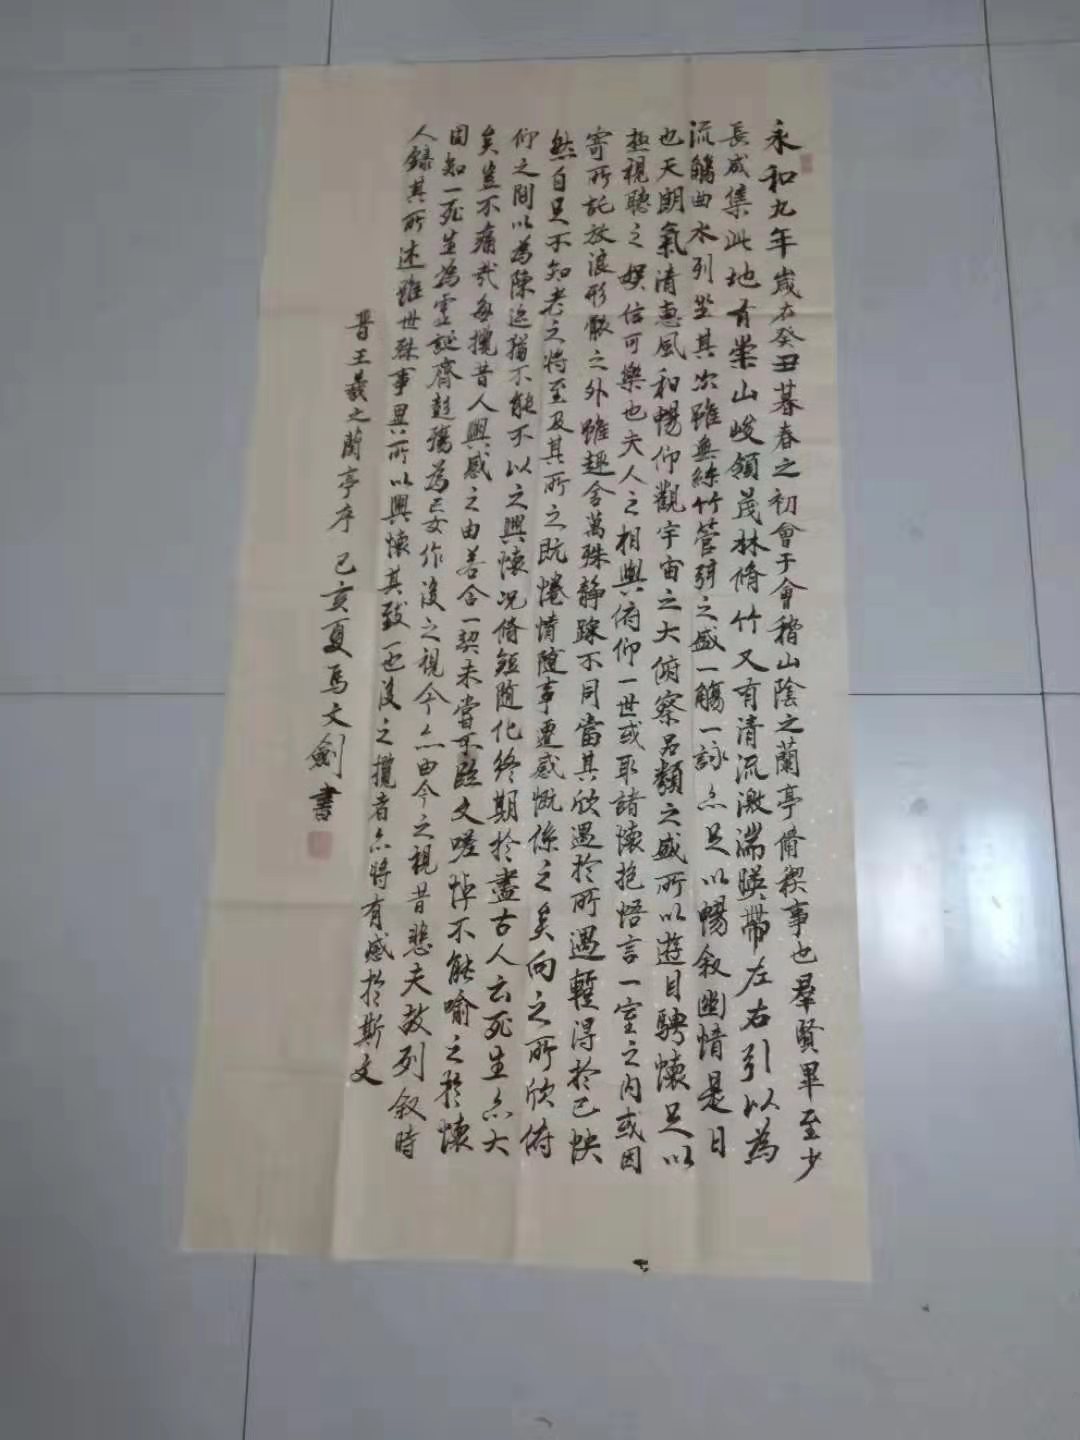 永和九年歲在癸丑暮春之初會于會稽山陰之蘭亭脩稧事也羣賢畢至少
長咸集此地有崇山峻領茂林脩竹又有清流激湍暎帶左右引以為
流觴曲水列坐其次雖無絲竹管弦之盛一觴一詠亦足以暢叙幽情是日
也天朗氣清惠風和暢仰觀宇宙之大俯察品類之盛所以遊目騁懷足以
極視聽之娛信可樂也夫人之相與俯仰一世或取諸懷抱悟言一室之內或因
寄所託放浪形骸之外雖趣舍萬殊静躁不同當其欣遇於所遇蹔得於己怏
然自足不知老之將至及其所之既惓情隨事遷感慨係之矣向之所欣俯
仰之間以為陳迹猶不能不以之興懷況脩短隨化終期於盡古人云死生亦大
矣豈不痛哉每攬昔人興感之由若合一契未嘗不臨文嗟悼不能喻之於懷
固知一死生為虛誕齊彭殤為妄作後之視今亦由今之視昔悲夫故列叙時
人錄其所述雖世殊事異所以興懷其致一也後之攬者亦將有感於斯文
晋王羲之蘭亭序 己亥夏馬文劍書